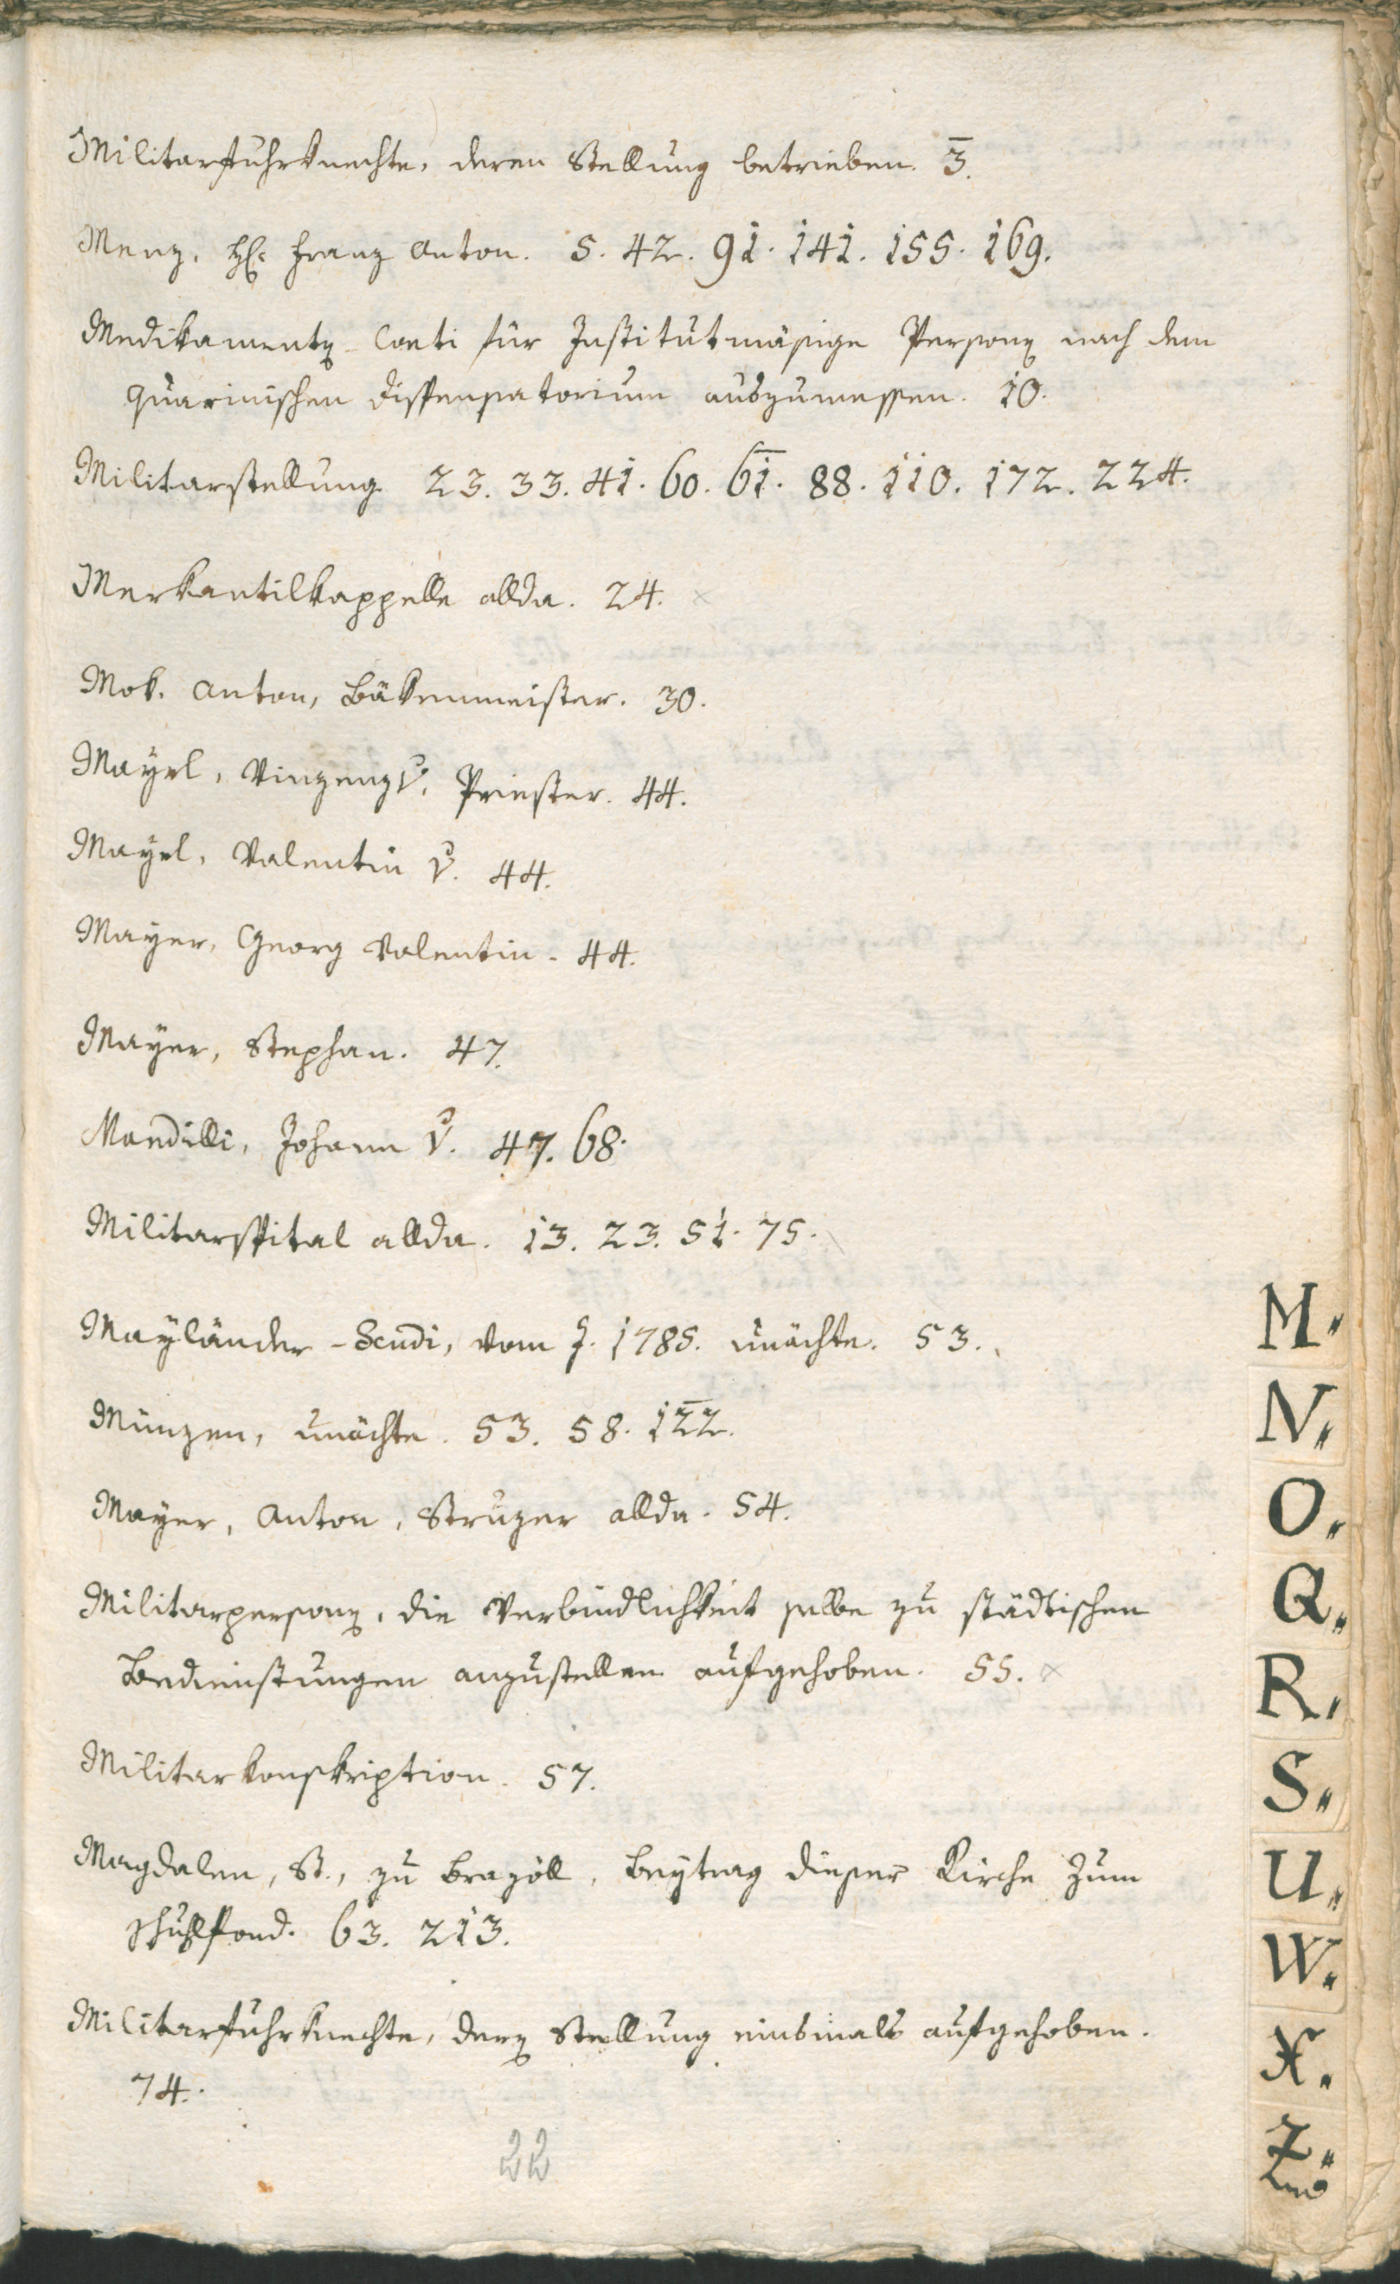 Militarfuhrknechte, deren Stellung betrieben. 3̅.
Menz, H: Franz Anton. 5. 42. 91. 141. 155. 169.
Medikamenten-Conti für Institutmäsige Personen nach dem
Quarinischen Dispensatorium auszumessen. 10.
Militarstellung 23. 33. 41. 60. 6̅1̅. 88. 110. 172. 224.
Merkantilkappelle allda. 24.
Mok. Anton, Bäkenmeister. 30.
Mayrl, Vinzenz V. Priester. 44.
Mayrl, Valentin V. 44.
Mayer, Georg Valentin. 44.
Mayer, Stephan. 47.
Mandilli, Johann V. 47. 68.
Militarspital allda. 13. 23. 51. 75.
Mayländer-Scudi, vom J. 1785. unächte. 53.
Münzen, unächte. 53. 58. 12̅2̅.
Mayer, Anton, Strüzer allda. 54.
Militarpersonen, die Verbindlichkeit selbe zu städtischen
Bedienstungen anzustellen aufgehoben. 55.
Militarkonskription. 57.
Magdalen, St., zu Brazöll, Beytrag dieser Kirche zum
Schulfond. 63. 213.
Militarfuhrknechte, deren Stellung einsmals aufgehoben.
74.
22
M.
N.
O.
Q.
R.
S.
U.
W.
X.
Z.